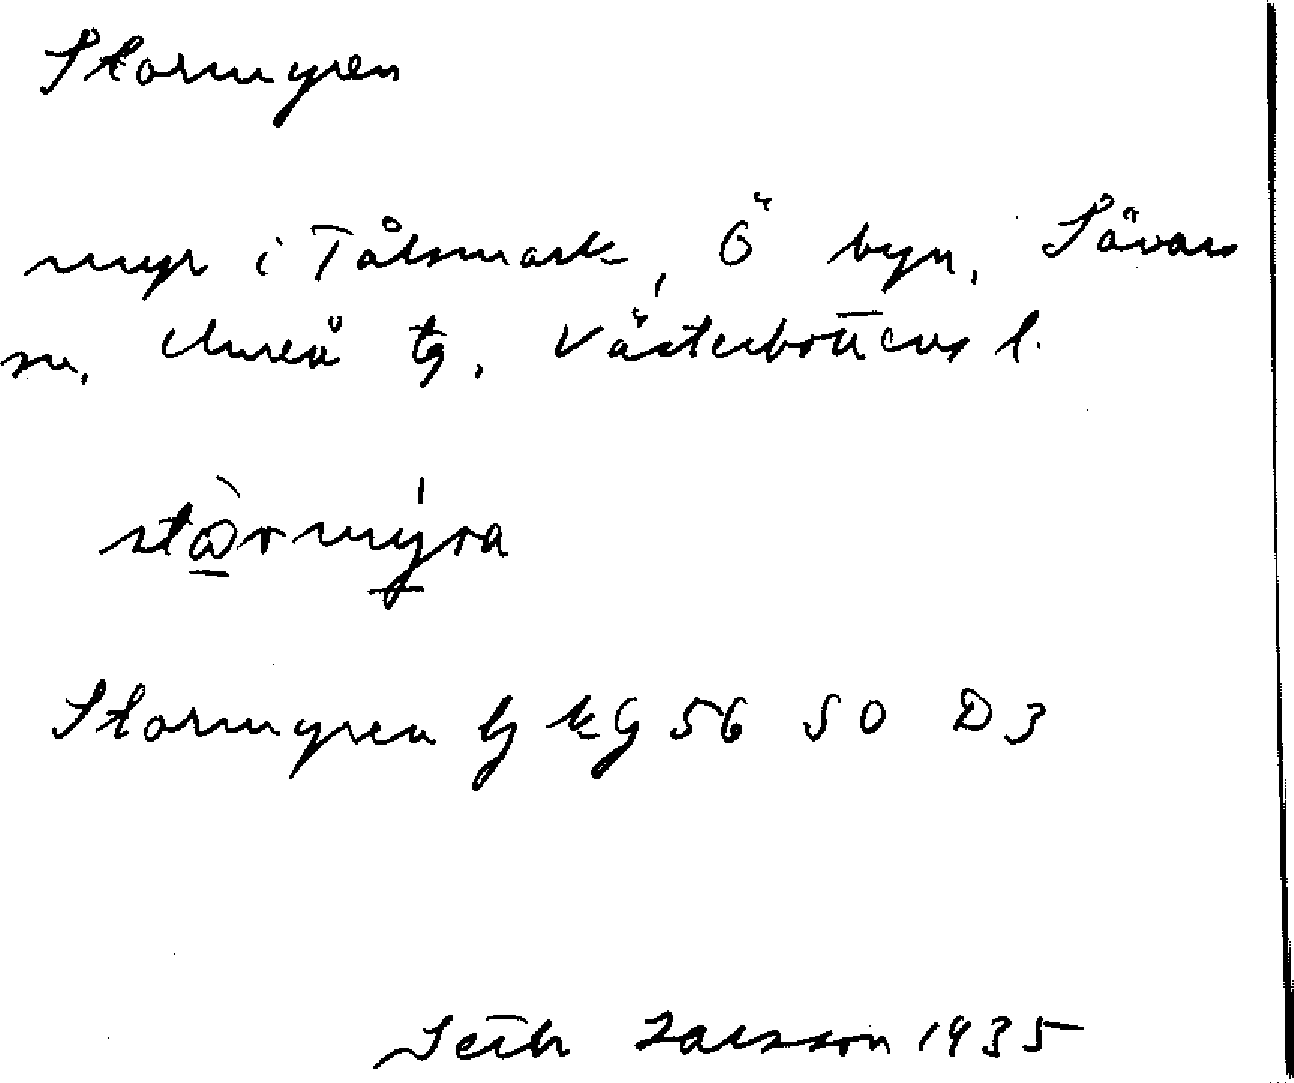 Stormyren
myr i Tålsmark, Ö byn, Sävars
sn, Umeå tg, Västerbottens l.
stormyra
Stormyren kg 56 SO D3
Seth Larsson 1935